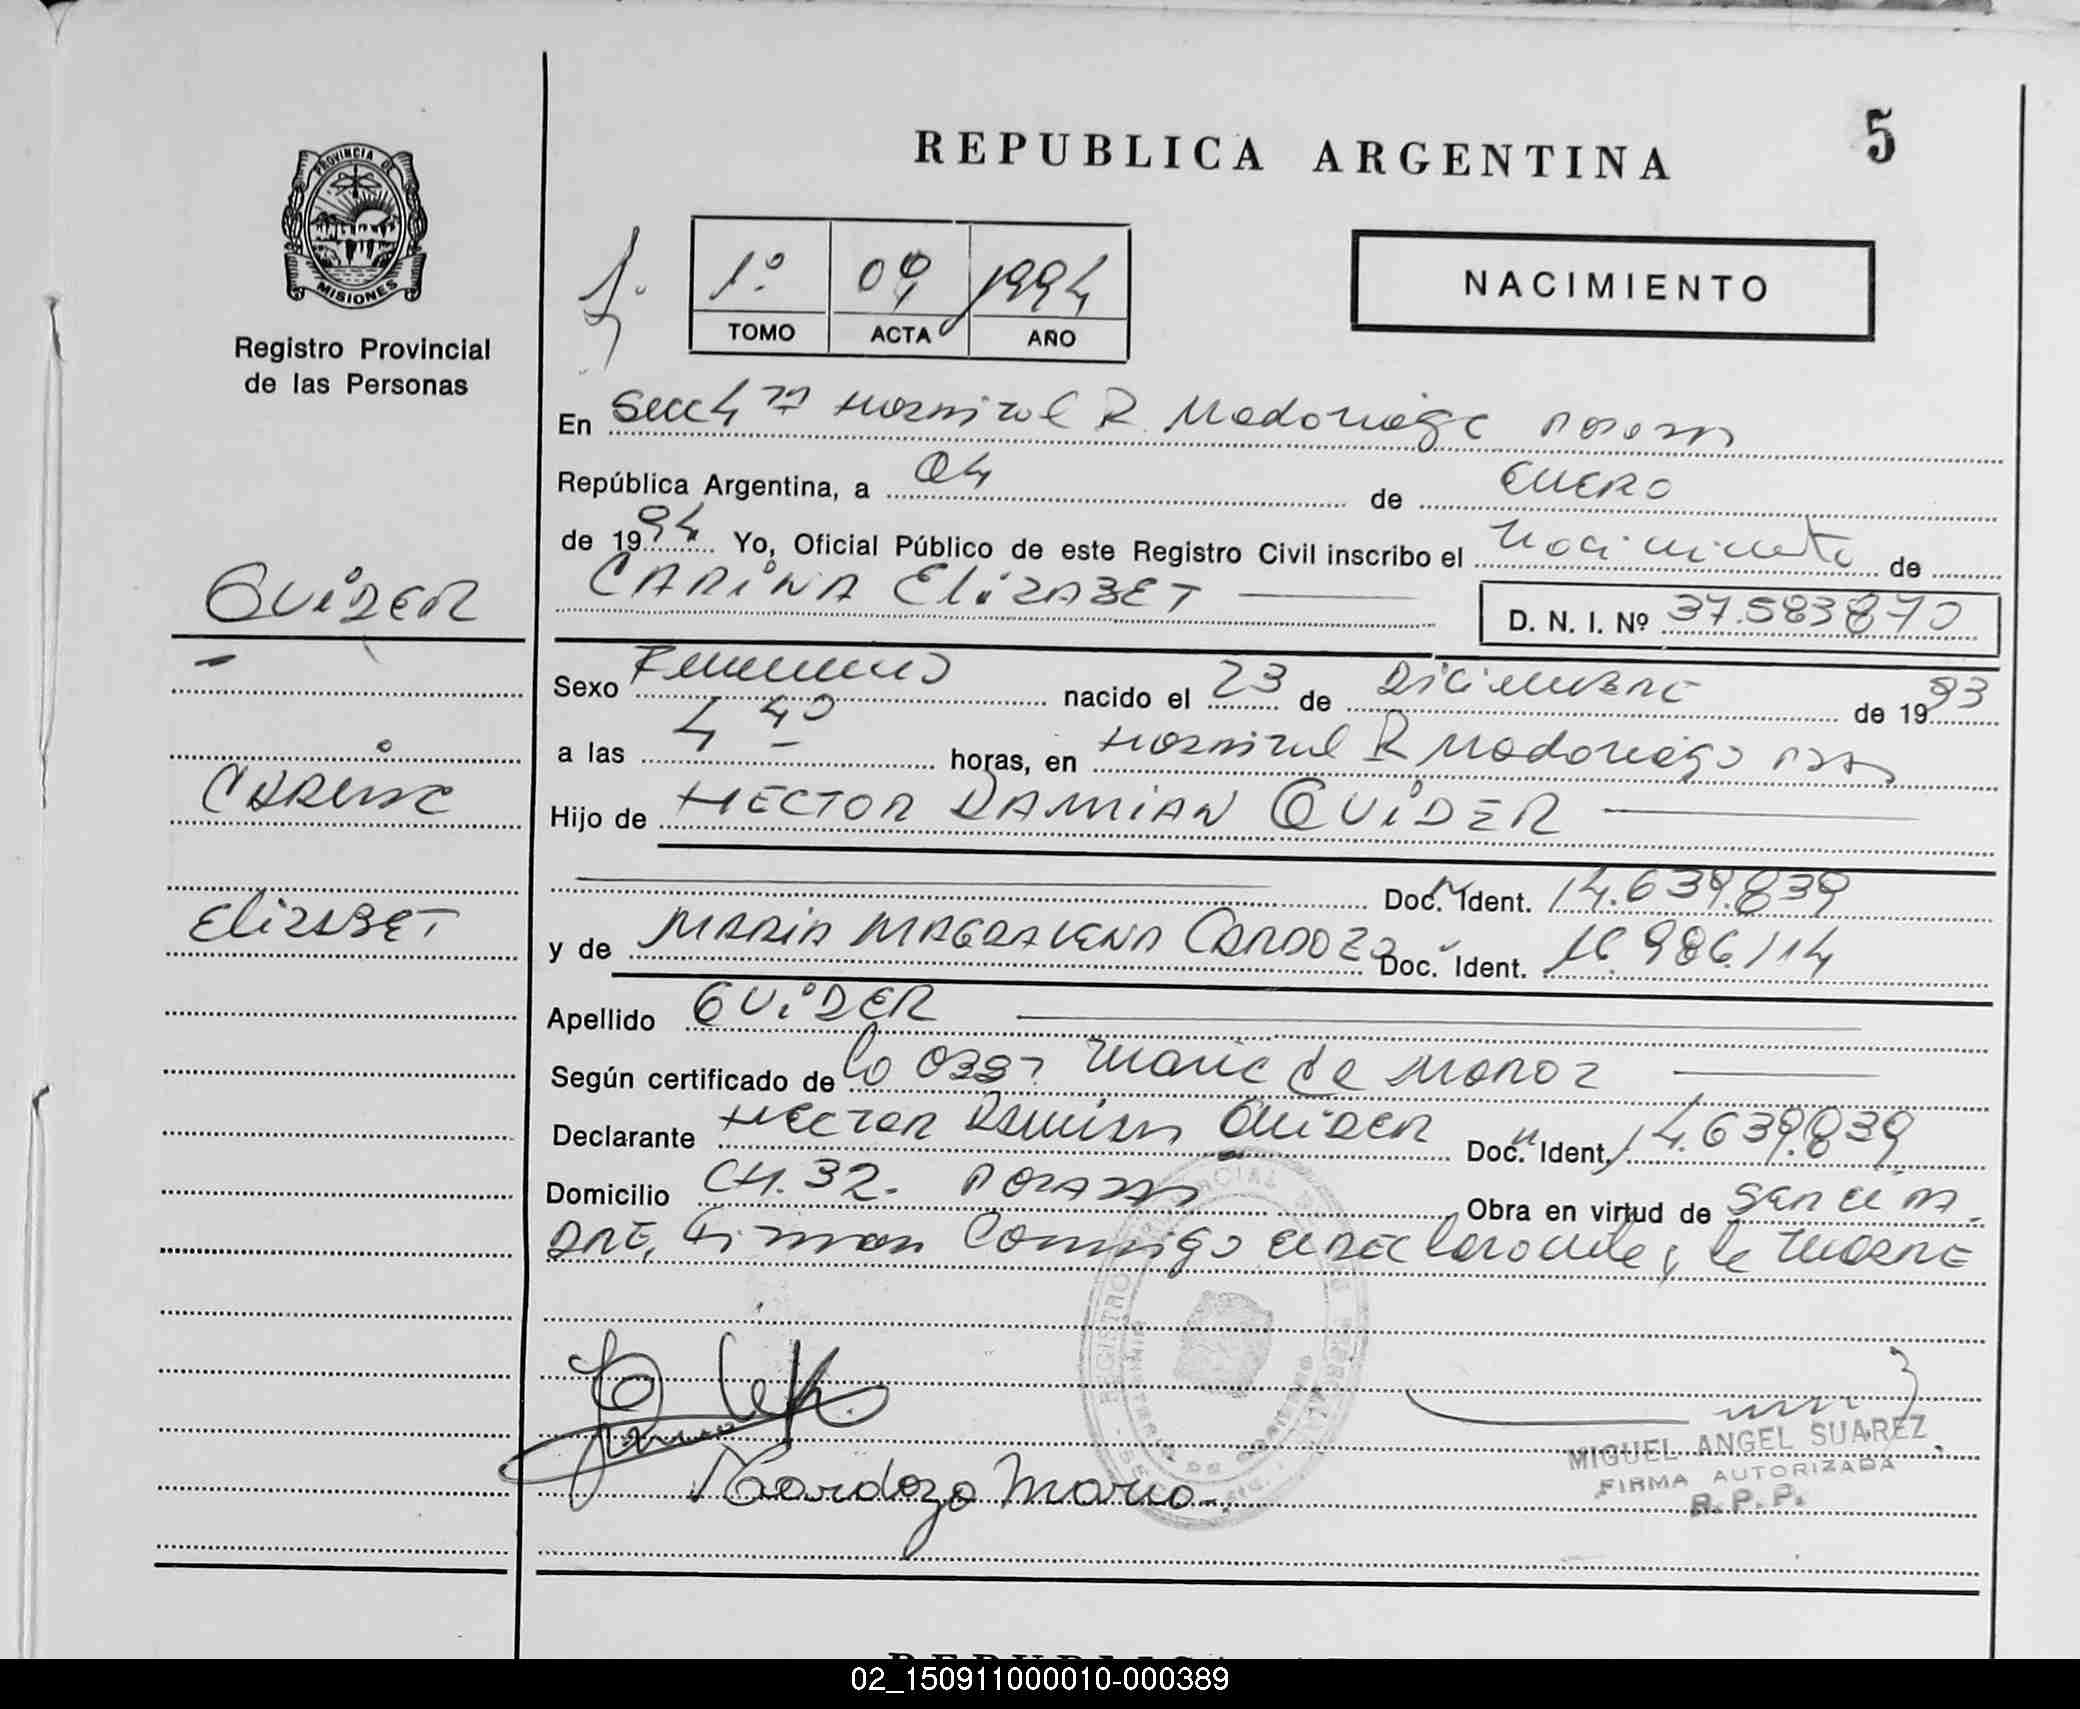 REPUBLICA ARGENTINA
5
PROVINCIA DE
MISIONES
Registro Provincial
de las Personas
1º 09 1994
TOMO ACTA AÑO
NACIMIENTO
En Secc 4ta Hospital R. Madoriaga Posadas
República Argentina, a 04 de ENERO
de 1994 Yo, Oficial Público de este Registro Civil inscribo el nacimiento de
CARINA ELIZABET
D. N. I. Nº 37.583870
GUIDER
CARINA
ELIZABET
Sexo Femenino nacido el 23 de DICIEMBRE de 1993
a las 4 40 horas, en Hospital R Madoriaga
Hijo de HECTOR DAMIAN GUIDER
Doc. Ident. 14.639.839
y de MARIA MAGDALENA CARDOZO Doc. Ident. 16.986.114
Apellido GUIDER
Según certificado de la Obst Maria de
Declarante HECTOR Damian GUIDER Doc. Ident. 14.639.839
Domicilio CH. 32. Posadas Obra en virtud de ser el PA-
DRE, Firman Conmigo el declarante y la MADRE
Cardozo Maria
MIGUEL ANGEL SUAREZ
FIRMA AUTORIZADA
R. P. P.
02_150911000010-000389